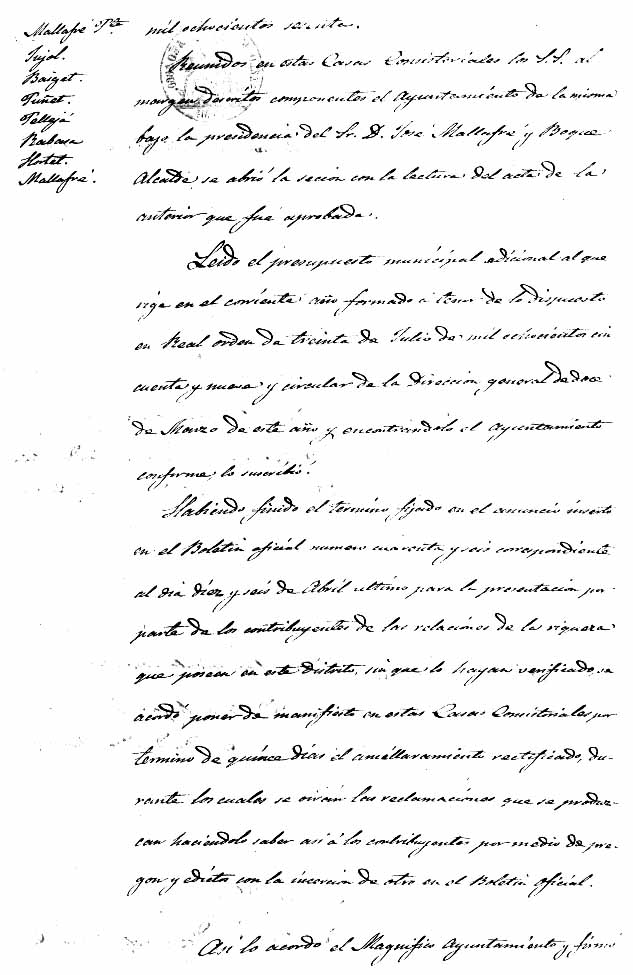 Mallafré Pte
Pujol.
Baiget.
Punet.
Pellejá
Rabasa
Hortet.
Mallafré.
mil ochocientos sesenta.
Reunidos en estas Casas Consistoriales los S.S. al
margen descritos componentes el Ayuntamiento de la misma
bajo la presidencia del Sr. D. José Mallafré y Boque
Alcalde, se abrió la secion con la lectura del acta de la
anterior que fué aprobada.
Leido el presupuesto municipal adicional al que
rige en el corriente año formado á tenor de lo dispuesto
en Real orden de treinta de Julio de mil ochocientos cin
cuenta y nueve y circular de la Direccion general de doce
de Marzo de este año y encontrandolo el Ayuntamiento
conforme, lo suscribió.
Habiendo finido el termino fijado en el anuncio inserto
en el Boletin oficial numero cuarenta y seis correspondiente
al dia diez y seis de Abril ultimo para la presentacion por
parte de los contribuyentes de las relaciones de la riqueza
que poseen en este distrito, sin que lo hayan verificado, se
acordó poner de manifiesto en estas Casas Consistoriales por
termino de quince dias el amillaramiento rectificado, du-
rante los cuales se oirán las reclamaciones que se produz-
can haciendolo saber asi á los contribuyentes por medio de pre-
gon y edictos con la incercion de otro en el Boletin Oficial.
Asi lo acordó el Magnifico Ayuntamiento y firmó